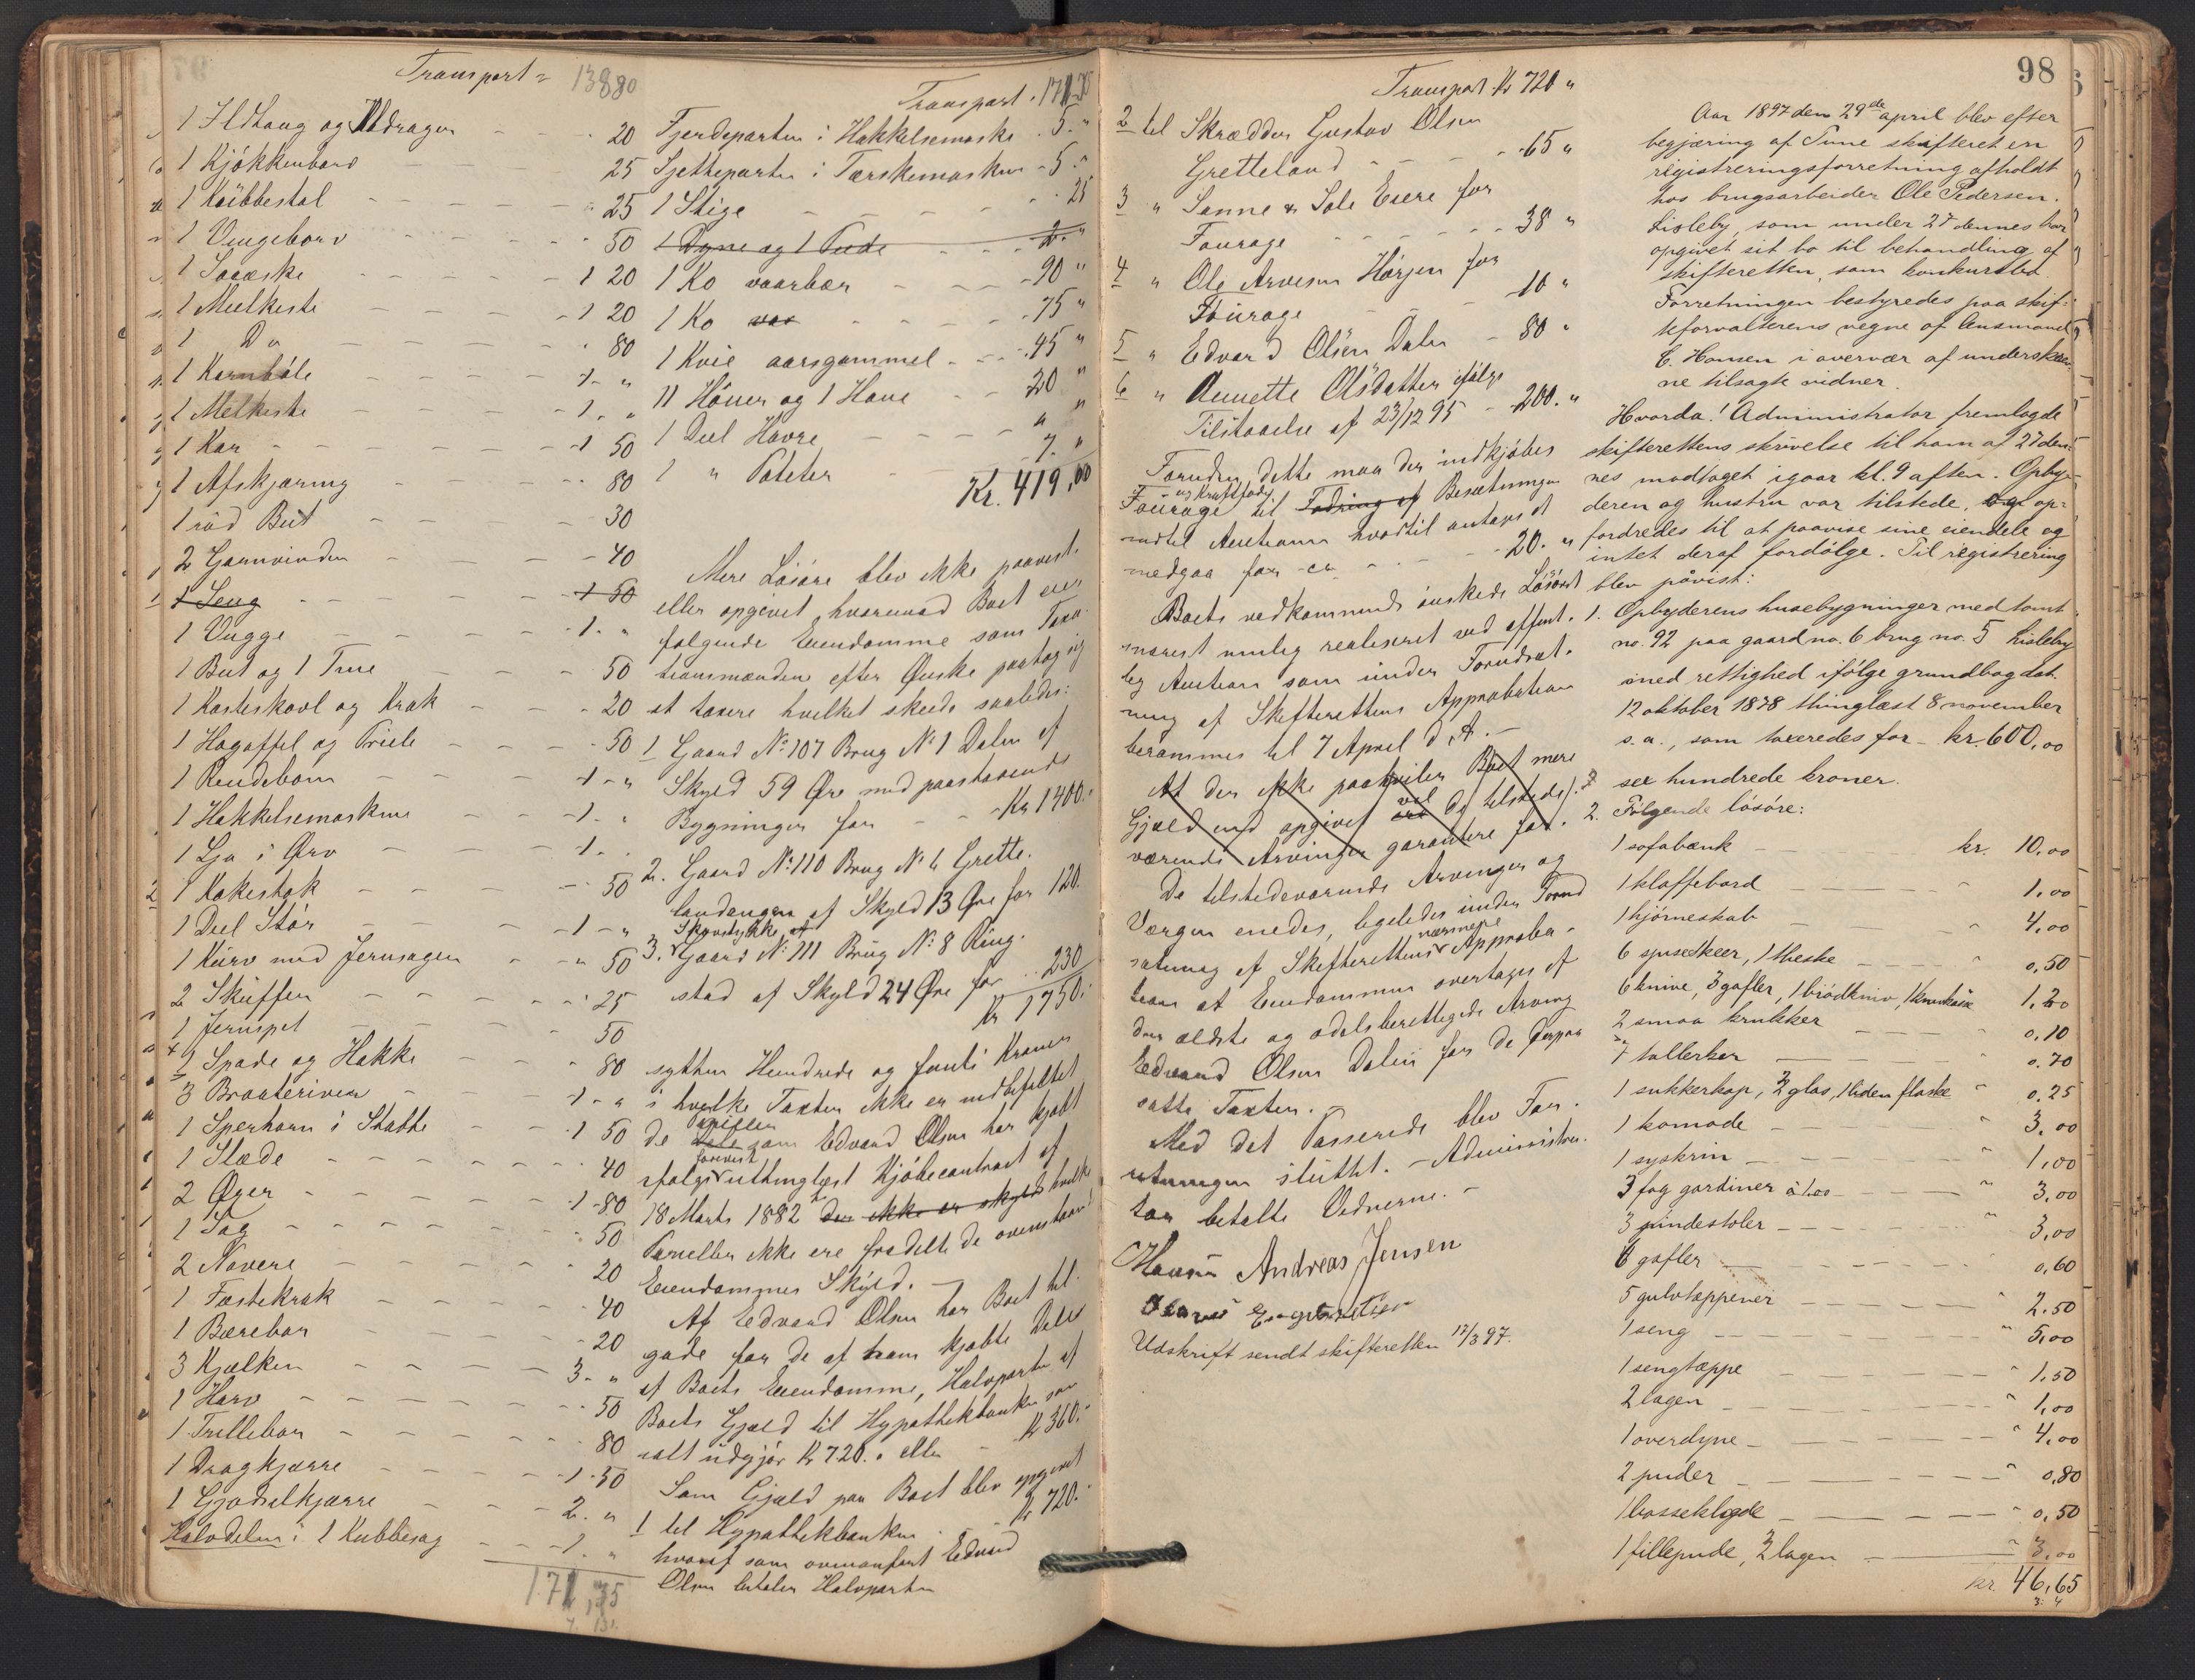 Transport = 13880
1 Ildtang og Ildrager - - - 20
1 Kjökkenbord - - 25
1 Kübbestol - - - - - 25
1 Vengebord - - - - 50
1 - - - - - 1 20
1 Meelkiste - - - - - 1 20
1 Do - - - - 80
1 Kornböle - - - - - 1 - "
1 Melkeste - - - - 1. "
1 Kar - - - - - 1 50
1 Afskjæring - - - - 80
1 röd But - - - 30
2 Garnvinder - - - 40
1 Seng - - - - - 1 50
1 Vugge - - - - - 1. "
1 But og 1 True - - - 50
1 Kasteskovl og Krak - - - 20
1 Hogaffel og Trille - - - 50
1 Rendebom - - - - - 1 - "
1 Hakkelsemaskine - - - 1. "
1 Lja i Orv - - - 1. "
1 Kakestak - - - - 50
1 Deel Stör - - - 1 - "
1 Kurv med Jernsager - - " 50
2 Skuffer - - - - - 25
1 Jernspet - - - - 50
1 Spade og Hakke - - - 80
3 Braateriver - - - 1 - "
1 Sperhorn i Stabbe - - 1 50
1 Slæde - - - - - - 40
2 Øxer - - - - 1 - 80
1 Sag - - - - - - 50
2 Navere - - - - 20
1 Fæstekrak - - - - 40
1 Bærebør - - - - 20
3 Kjælker - - - - - 3 - "
1 Harv - - - - - - 50
1 Trillebør - - - - - 80
1 Dragkjærre - - - - 1 - 50
1 Gjødselkjærre - - - 2. "
Halvdelen i 1 Kubbesag - - 1. "
171,35
Transport. 171 35
Fjerdeparten i Hakkelsemaski . 5. "
Sjetteparten i Tærskemaskin - 5. "
1 Stige - - - - - 25
1 Dyne og 1 Pude - - - 2. "
1 Ko vaarbær - - - 90 "
1 Ko - - - - - 75 "
1 Kvie aarsgammel - - - 45 "
11 Höner og 1 Hane - - 20 "
1 Deel Havre - - - - " "
1 " Poteter - - - - 7. "
Kr. 419,00
Mere Lösöre blev ikke paavist
eller opgivet, hvorimod Boet eier
følgende Eiendomme som Taxa-
tionsmændene efter Ønske paatog sig
at taxere hvilket skeede saaledes:
1 Gaard No 107 Brug No 1 Dalen af
Skyld 59 Øre med paastaaende
Bygninger for - - Kr 1400.
2. Gaard No 110 Brug No 6 Grette.
landengen af Skyld 13 Øre for 120.
Skovstykke af
3. Gaard No 111 Brug No 8 Ring.
stad af Skyld 24 Øre for . . 230
Kr 1750.
sytten Hundrede og femti Kroner
i hvilke Taxter ikke er indbefattet
de som Edvard Olsen har kjøbt
ifølge uthinglæst Kjöbecontract af
18 Marts 1882 der ikke er skyld hvilke
Parceller ikke ere fradelte de ovenstaaend
Eiendommes Skyld. —
Af Edvard Olsen har Boet til.
gode for de af ham kjøbte Dele
af Boets Eiendomme, Halvparten af
Boets Gjæld til Hypothekbanken som
ialt udgjör Kr 720. " eller - - Kr 360. "
Som Gjæld paa Boet blev opgivet
1 til Hypothekbanken - - Kr 720.
hvoraf som ovenanført Edvard
Olsen betaler Halvparten
Transport Kr 720 "
2 til Skrædder Gustav Olsen
Gretteland - - - - - 65 "
3 " Sanne & Soli Eiere for
Fourage - - - - - - 38 "
4 " Ole Arvesen Hörgen for
Fourage - - - 10 "
5 " Edvard Olsen Dalen - 80 "
6 " Annette Olsdatter ifølge
Tilstaaelse af 23/12 95 - 200. "
Foruden dette maa der indkjöbes
og Kraftfoder
Fourage til Fodring af Besætningen
indtil Auctionen hvortil antages at
medgaa for ca - - - 20. "
Boets vedkommende önskede Lösöret
snarest mulig realiseret ved offent.
lig Auction som under Forudsæt.
ning af Skifterettens Approbation
berammes til 7 April d. A. —
At der ikke paahviler Boet mere
Gjæld end opgivet vel De tilstede
værende Arvinger garantere for.
De tilstedeværende Arvinger og
Værgen enedes, ligeledes under Forud
nærmere
sætning af Skifterettens Approba-
tion at Eiendommen overtages af
den ældste og odelsberettigede Arving
Edvard Olsen Dalen for de derpaa
satte Taxter. —
Med det Passerede blev For.
retningen sluttet. — Administra.
tor betalte Vidnerne. —
Hansen Andreas Jensen
Udskrift sendt skifteretten 12/3 97.
98
Aar 1897 den 29de april blev efter
begjæring af Tune skifteret en
registreringsforretning afholdt
hos brugsarbeider Ole Pedersen.
Lisleby, som under 27 dennes har
opgivet sit bo til behandling af
skifteretten, som konkursbo.
Forretningen bestyredes paa skif-
teforvalterens vegne af lensmand
C. Hansen i overvær af underskrev
ne tilsagte vidner.
Hvorda! Administrator fremlagde
skifterettens skrivelse til ham af 27 den-
nes modtaget igaar kl. 9 aften. Opby-
deren og hustru var tilstede, og op-
fordredes til at paavise sine eiendele og
intet deraf fordölge. Til registrering
blev påvist:
1. Opbyderens husebygninger med tomt
no. 92 paa gaard no. 6 brug no. 5 Lisleby
med rettighed ifölge grundbog dat.
12 oktober 1878 thinglæst 8 november
s. a., som taxeredes for - kr. 600,00
sex hundrede kroner.
2. Fölgende lösöre:
1 sofabænk - - kr. 10,00
1 klaffebord - - - - " 1,00
1 hjörneskab - - - " 4,00
6 spiseskeer, 1 theske - - - " 0,50
6 knive, 3 gafler, 1 brödkniv, 1 1,20
2 smaa krukker - - - 0,10
7 tallerker - - - - " 0,70
1 sukkerkop, 2 glas, 1 liden flaske " 0,25
1 komode - - - - " 3,00
1 syskrin - - - - " 1,00
3 fag gardiner à 1.00 - - - " 3,00
3 pindestoler - - - - " 3,00
6 gafler - - - - - 0,60
5 gulvtæppener - - - - 2,50
1 seng - - - - - " 5,00
1 sengtæppe - - - - " 1,50
2 lagen - - - - - " 1,00
1 overdyne - - - - - " 4,00
2 puder - - - - - " 0,80
1 bosseklæde - - - - " 0,50
1 fillepude, 2 lagen - - " 3,00
kr. 46,65